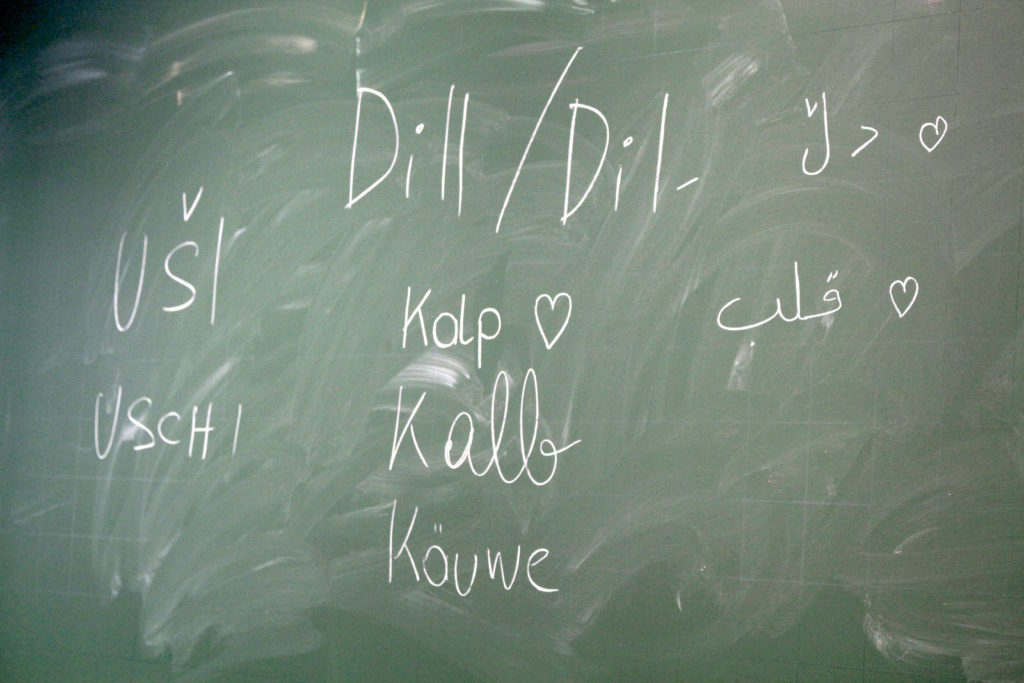 Dill / Dil-
دڵ ♡
UŠI
Kalp ♡
قلب ♡
USCHI
Kalb
Köuwe